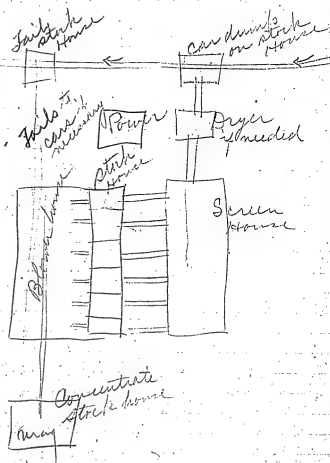 Tails
Stock
House
Car dumps
on stock
House
Tails to
cars if
necessary
Power
Dryer
if needed
Stock
House
Blower house
Screen
House
Concentrate
stock house
mag